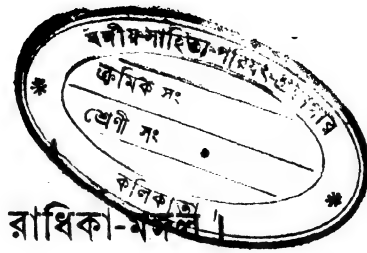 বঙ্গীয়-সাহিত্য-পরিষৎ-গ্রন্থাগার
ক্রমিক সং
শ্রেণী সং
কলিকাতা
রাধিকা-মঙ্গল।